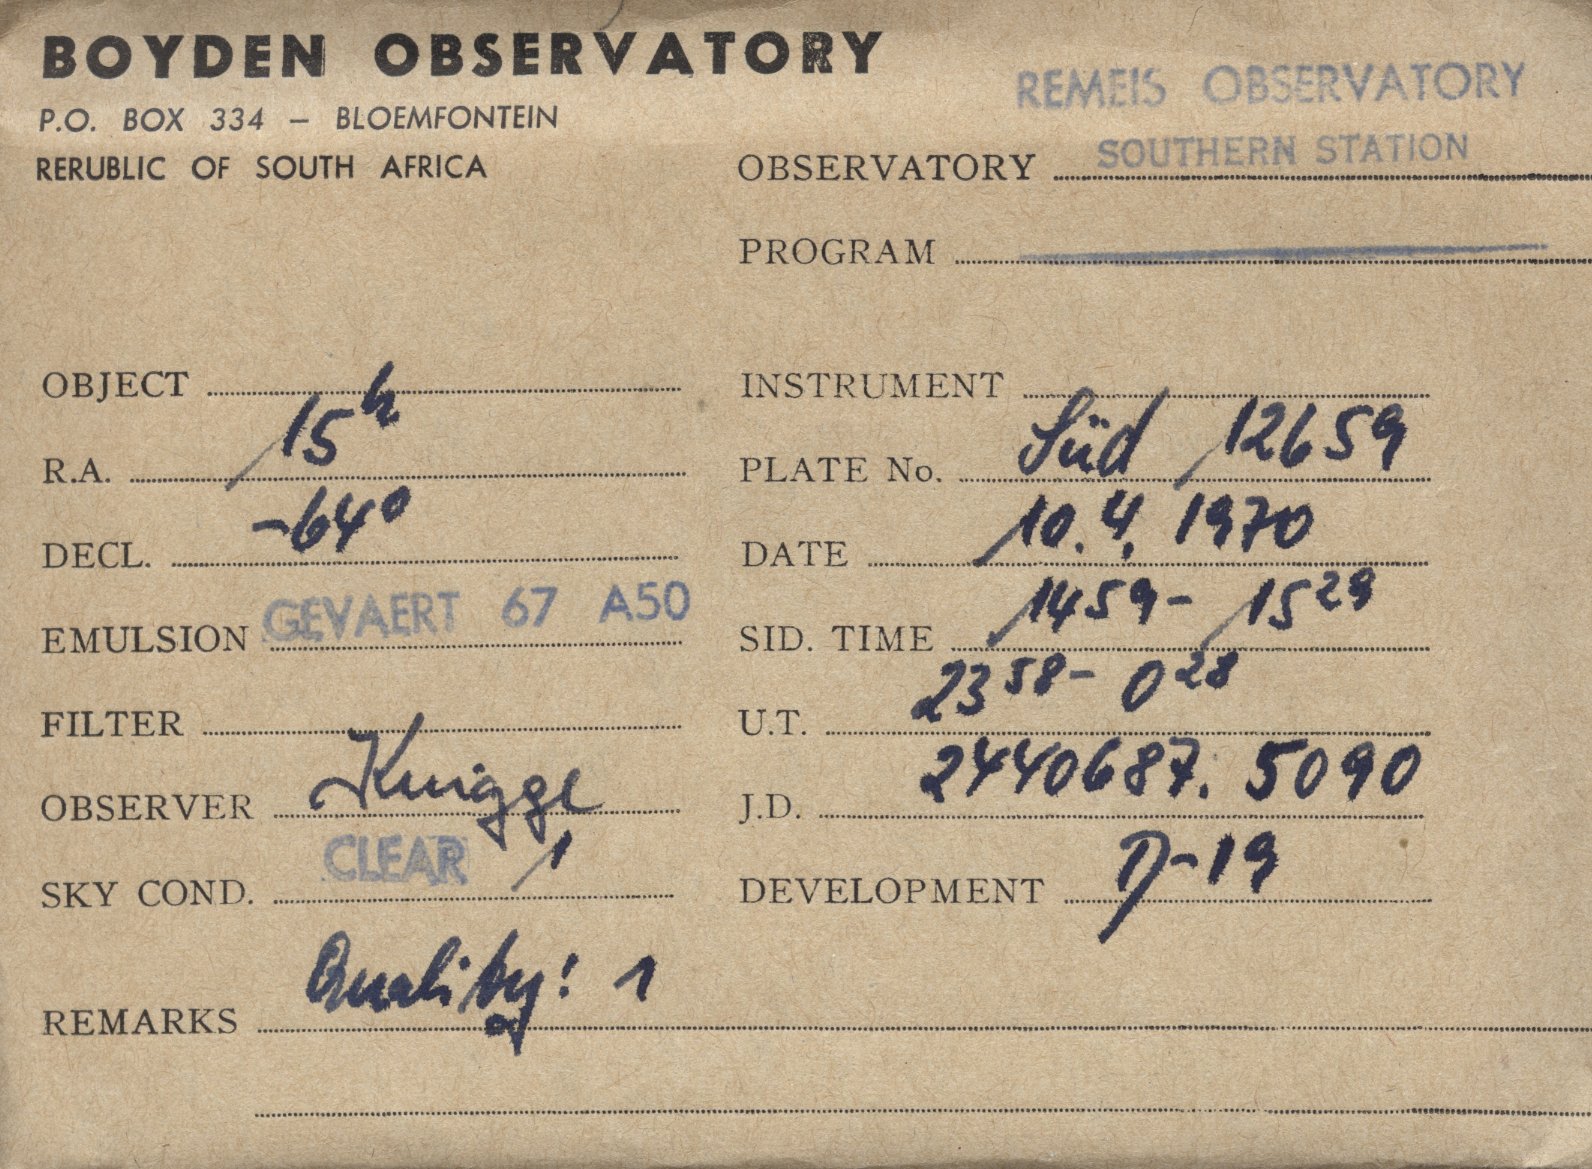 BOYDEN OBSERVATORY
P.O. BOX 334 – BLOEMFONTEIN
RERUBLIC OF SOUTH AFRICA
REMEIS OBSERVATORY
SOUTHERN STATION
OBSERVATORY
PROGRAM
OBJECT
R.A. 15h
DECL. -64°
EMULSION GEVAERT 67 A50
FILTER
OBSERVER Knigge
SKY COND. CLEAR 1
INSTRUMENT
PLATE No. Süd 12659
DATE 10.4.1970
SID. TIME 1459- 1529
U.T. 2358- 028
J.D. 2440687.5090
DEVELOPMENT D-19
REMARKS Quality: 1